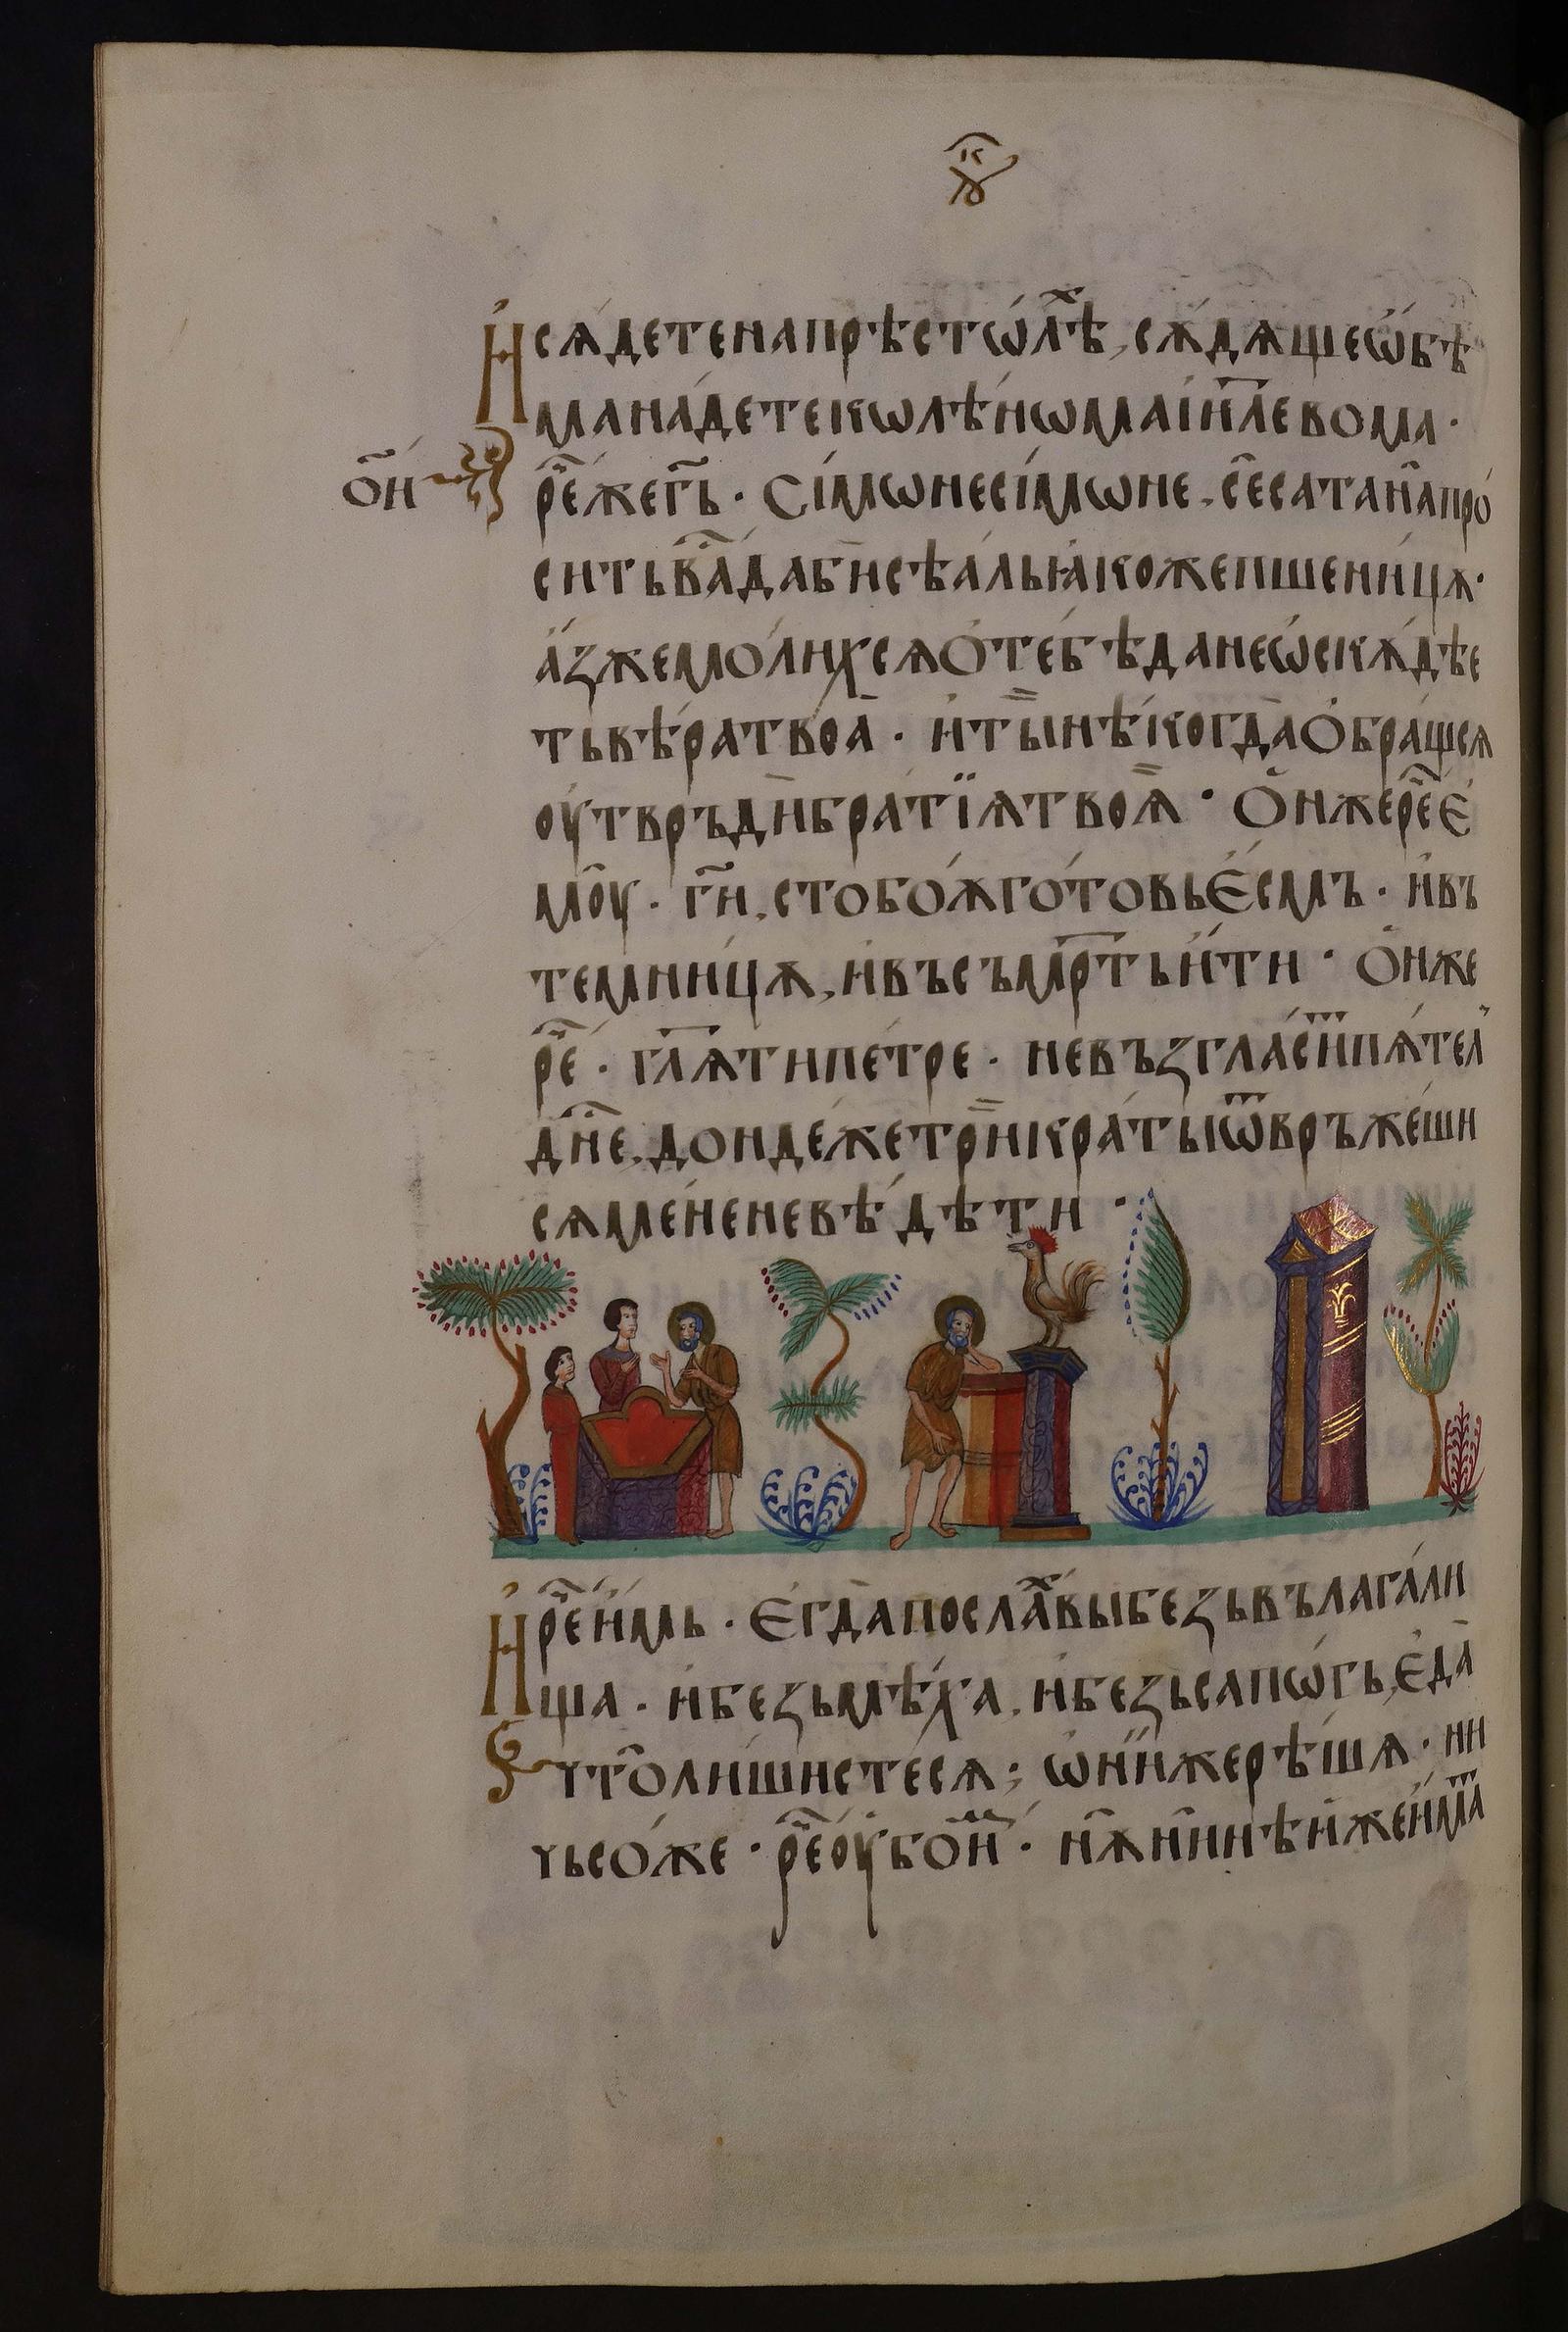 И сѧ́дете на прѣстѡ́лⷯѣ, сѫ́дѧще ѡ҆бѣ
ма на́десѧте кѡлѣ́нѡма і҆и҃левома ·
о҆н
рⷱ҇е́ же г҃ь · Сі́мѡне сі́мѡне, се̑ сатана̑ про́
сить ва̑ да бѝ сѣ́аль ꙗ҆́коже пшени́цѫ ·
а҆́з же моли́хсѧ ѻ҆ те́бѣ да не ѡ҆скѫ́дѣе
ть вѣ́ра твоа̀ · и҆ ты̏ нѣ́когда̀ ѻ҆бра́щсѧ
ѹ҆твръдѝ бра́тїѫ твоѫ̏ · Ѻ҆́н же рⷱ҇е є҆
мо̑у · г҃и, с тобо́ѫ гото́вь є҆́смъ · и҆ въ
темни́цѫ, и҆ въ съмр҃ть и҆́ти · Ѻ҆́н же
рⷱ҇е́ · гл҃ѫ ти пе́тре · не възгласи́ пѣ́тел
дн҃е, до́нде́же трѝкра́ты ѿвръже́ши
сѧ мене́ не вѣ́дѣти ·
И рⷱ҇е и҆́мь · Є҆гда̀ посла́ⷯ вы безь въла́гали
ща · и҆ безь мѣ́ха, и҆ безь сапѡ́гь, є҆да̀
чт̑о лиши́стесѧ; ѡ҆ни́ же рѣ́шѧ · ни
чьсо́же · рⷱ҇е ѹ҆́бо и҆̑мⷨ · нѫ̑ ни́нѣ и҆́же и҆́ма̏